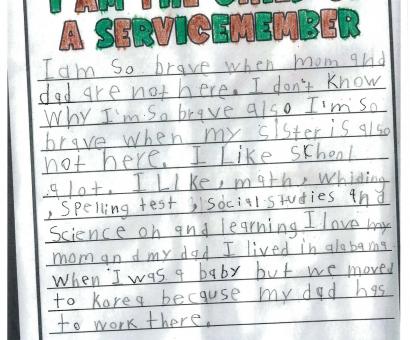 I AM THE CHILD OF
A SERVICEMEMBER
I am so brave when mom and
dad are not here. I don't know
why I'm so brave also I'm so
brave when my sister is also
not here. I Like school
a lot. I LIke, math, whiding
, spelling test , social studies and
science oh and learning I love my
mom and my dad I lived in alabama
when I was a baby but we moved
to korea because my dad has
to work there.